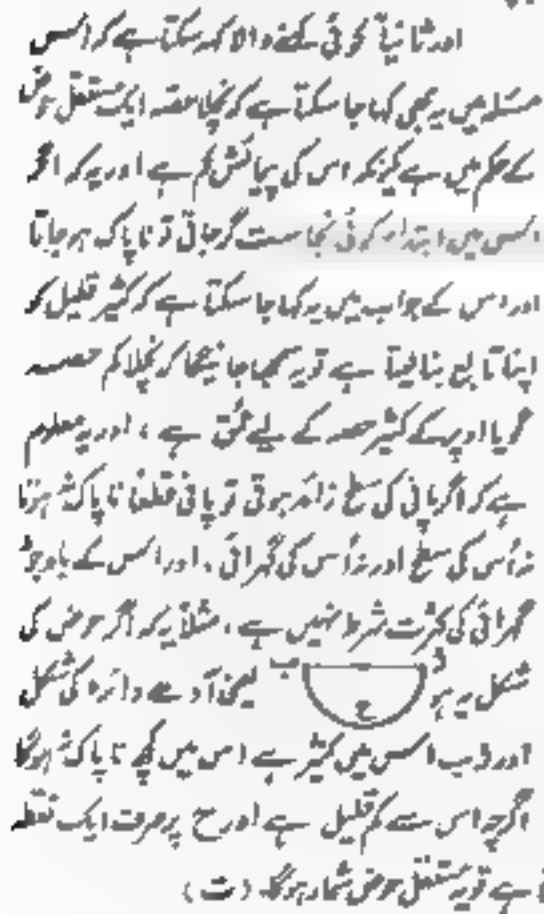 اور ثانیاً کوئی کہنے والا کہہ سکتا ہے کہ اس
مسئلہ میں یہ بھی کہا جا سکتا ہے کہ نچلا حصہ ایک مستقل حوض
کے حکم میں ہے کیونکہ اس کی پیمائش کم ہے اور یہ کہ اگر
اس میں ابتداء کوئی نجاست گر جاتی تو ناپاک ہو جاتا
اور اس کے جواب میں یہ کہا جا سکتا ہے کہ کثیر قلیل کو
اپنا تابع بنا لیتا ہے تو یہ سمجھا جائیگا کہ نچلا کم حصہ
گویا اوپر کے کثیر حصہ کے لیے عمق ہے ، اور یہ معلوم
ہے کہ اگر پانی کی سطح زائد ہوتی تو پانی قطعاً ناپاک نہ ہوتا
نہ اُس کی سطح اور نہ اُس کی گہرائی ، اور اس کے باوجود
گہرائی کی کثرت شرط نہیں ہے ، مثلاً یہ کہ اگر حوض کی
شکل یہ ہو ب ح یعنی آدھے دائرہ کی شکل
اور ب اس میں کثیر ہے اس میں کچھ ناپاک نہ ہوگا
اگرچہ اس سے کم قلیل ہے اور ح پر صرف ایک نقطہ
ہے تو یہ مستقل حوض شمار ہوگا۔ (ت)